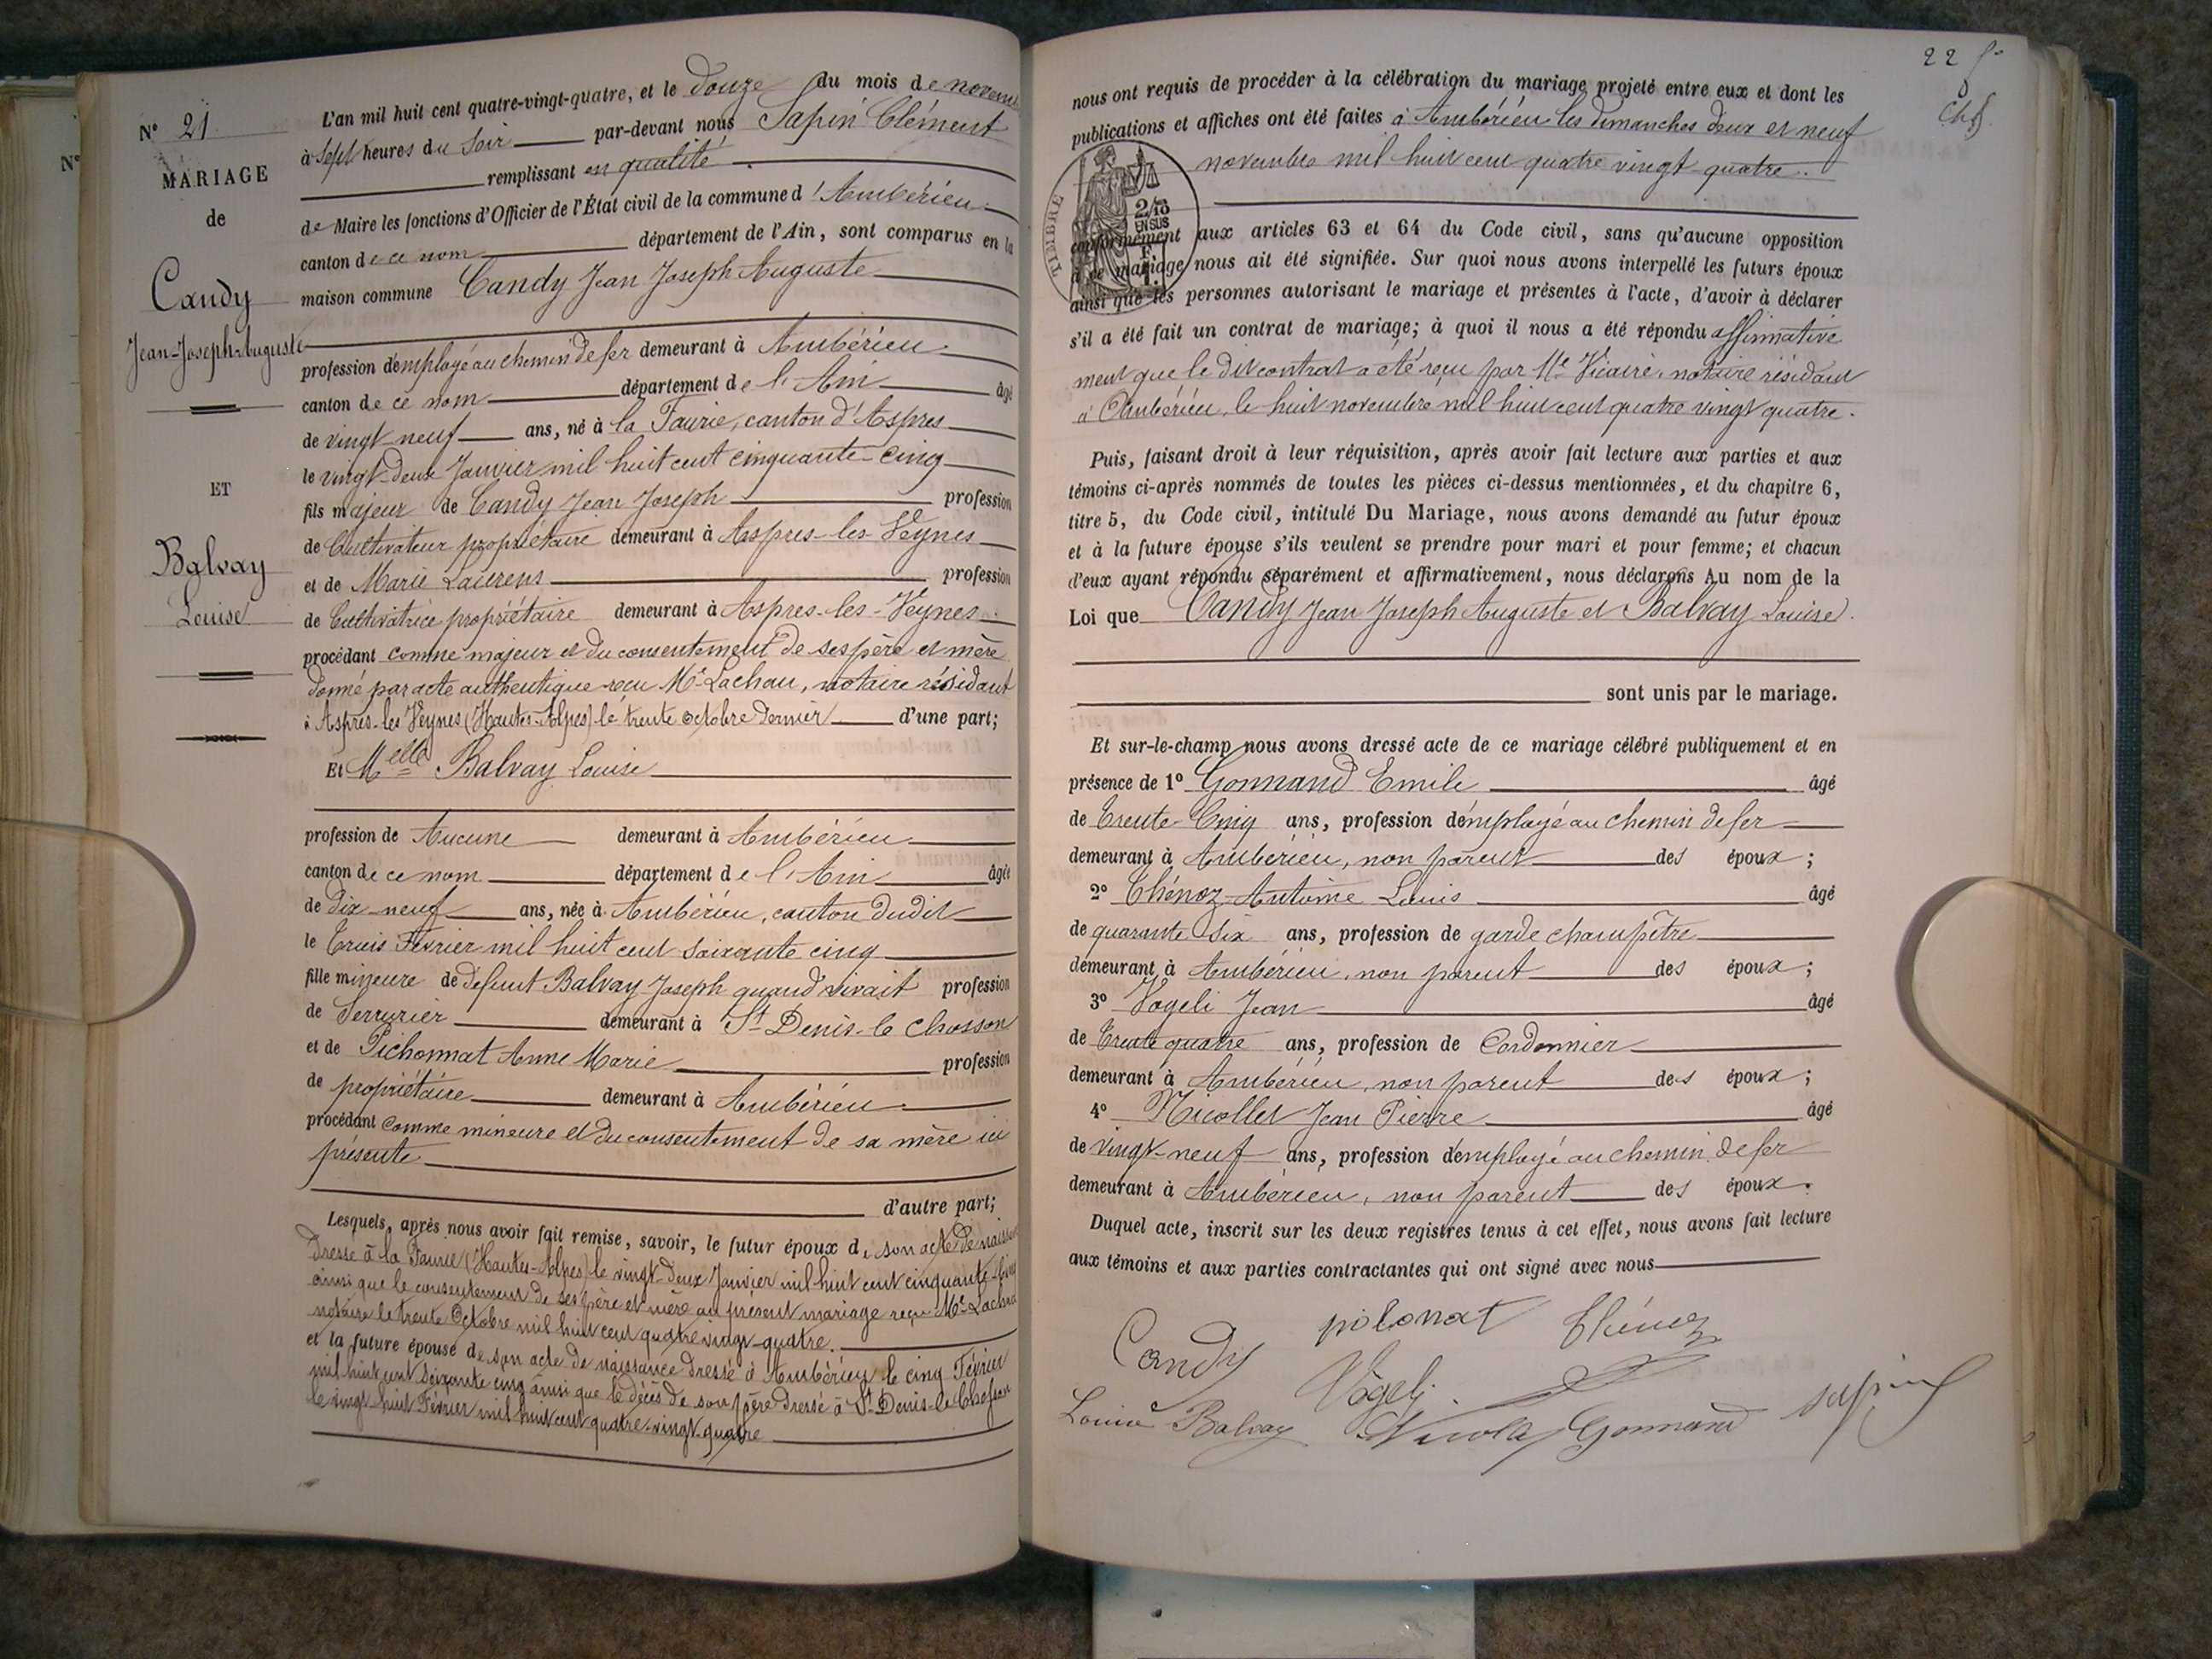 N°
N° 21
MARIAGE
de
Candy
Jean-Joseph-Auguste
ET
Balvay
Louise
L'an mil huit cent quatre-vingt-quatre, et le douze du mois de novem
à sept heures du soir par-devant nous Sapin Clément
remplissant en qualité
de Maire les fonctions d'Officier de l'État civil de la commune d'Ambérieu
canton de ce nom département de l'Ain, sont comparus en la
maison commune Candy Jean Joseph Auguste
profession d'employé au chemin de fer demeurant à Ambérieu
canton de ce nom département de l'Ain âgé
de vingt-neuf ans, né à la Faurie, canton d'Aspres
le vingt-deux Janvier mil huit cent cinquante-cinq
fils majeur de Candy Jean Joseph profession
de Cultivateur propriétaire demeurant à Aspres-les-Veynes
et de Marie Laurens profession
de Cultivatrice propriétaire demeurant à Aspres-les-Veynes
procédant comme majeur et du consentement de ses père et mère
donné par acte authentique reçu Me Lachau, notaire résidant
à Aspres-les-Veynes (Hautes-Alpes) le trente octobre dernier d'une part;
Et Melle Balvay Louise
profession de Aucune demeurant à Ambérieu
canton de ce nom département de l'Ain âgée
de dix-neuf ans, née à Ambérieu, canton dudit
le trois Février mil huit cent soixante cinq
fille mineure de défunt Balvay Joseph quand vivait profession
de Serrurier demeurant à St Denis-le Chosson
et de Pichonnat Anne Marie profession
de propriétaire demeurant à Ambérieu
procédant comme mineure et du consentement de sa mère ici
présente
d'autre part;
Lesquels, après nous avoir fait remise, savoir, le futur époux de son acte de naissan
dressé à la Faurie (Hautes-Alpes) le vingt-deux Janvier mil huit cent cinquante-cinq
ainsi que le consentement de ses père et mère au présent mariage reçu Me Lachau
notaire le trente Octobre mil huit cent quatre vingt-quatre.
et la future épouse de son acte de naissance dressé à Ambérieu le cinq Février
mil huit cent soixante cinq ainsi que le décès de son père dressé à St Denis-le-Chosson
le vingt-huit Février mil huit cent quatre-vingt-quatre
22
nous ont requis de procéder à la célébration du mariage projeté entre eux et dont les
publications et affiches ont été faites à Ambérieu les dimanches deux et neuf
novembre mil huit cent quatre vingt quatre.
TIMBRE
2/10
EN SUS
conformément aux articles 63 et 64 du Code civil, sans qu'aucune opposition
à ce mariage nous ait été signifiée. Sur quoi nous avons interpellé les futurs époux
ainsi que les personnes autorisant le mariage et présentes à l'acte, d'avoir à déclarer
s'il a été fait un contrat de mariage; à quoi il nous a été répondu affirmative
ment que le dit contrat a été reçu par Me Vicaire, notaire résidant
à Ambérieu, le huit novembre mil huit cent quatre vingt quatre.
Puis, faisant droit à leur réquisition, après avoir fait lecture aux parties et aux
témoins ci-après nommés de toutes les pièces ci-dessus mentionnées, et du chapitre 6,
titre 5, du Code civil, intitulé Du Mariage, nous avons demandé au futur époux
et à la future épouse s'ils veulent se prendre pour mari et pour femme; et chacun
d'eux ayant répondu séparément et affirmativement, nous déclarons Au nom de la
Loi que Candy Jean Joseph Auguste et Balvay Louise
sont unis par le mariage.
Et sur-le-champ nous avons dressé acte de ce mariage célébré publiquement et en
présence de 1° Gonnand Emile âgé
de Trente-Cinq ans, profession d'employé au chemin de fer
demeurant à Ambérieu, non parent des époux;
2° Thénoz Antoine Louis âgé
de quarante six ans, profession de garde champêtre
demeurant à Ambérieu, non parent des époux;
3° Vogeli Jean âgé
de Trente quatre ans, profession de Cordonnier
demeurant à Ambérieu, non parent des époux;
4° Nicollet Jean Pierre âgé
de vingt-neuf ans, profession d'employé au chemin de fer
demeurant à Ambérieu, non parent des époux.
Duquel acte, inscrit sur les deux registres tenus à cet effet, nous avons fait lecture
aux témoins et aux parties contractantes qui ont signé avec nous
Candy pilonat Thénoz
Vögeli
Louise Balvay Gonnand Sapin